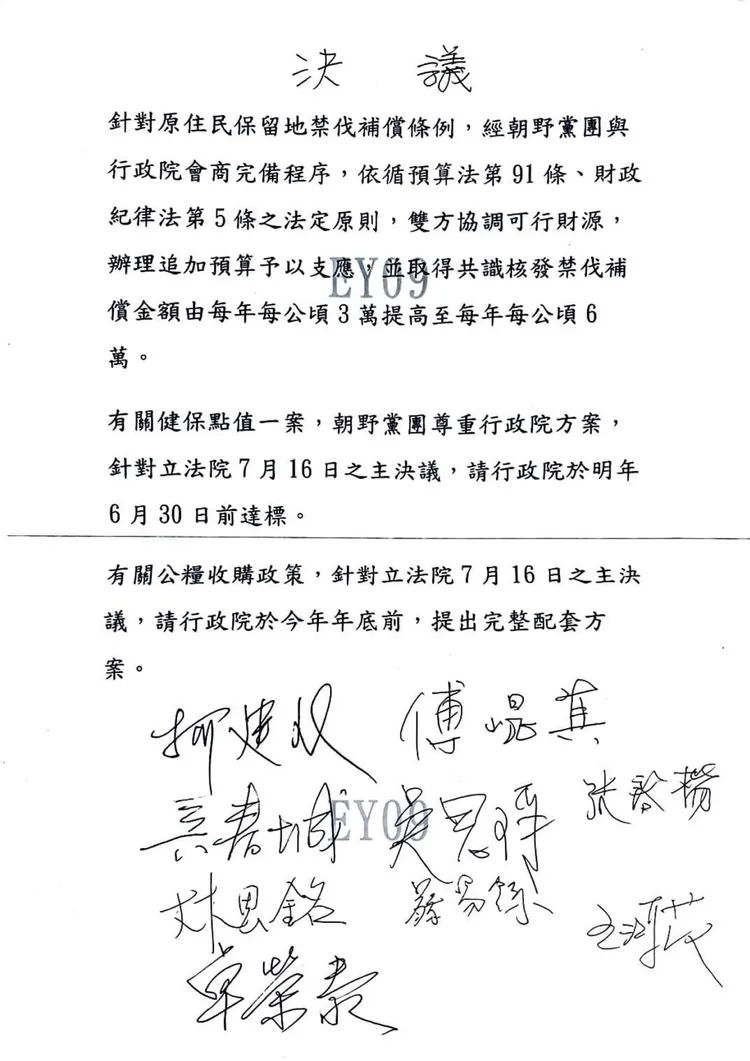 決 議
針對原住民保留地禁伐補償條例，經朝野黨團與
行政院會商完備程序，依循預算法第 91 條、財政
紀律法第 5 條之法定原則，雙方協調可行財源，
辦理追加預算予以支應，並取得共識核發禁伐補
償金額由每年每公頃 3 萬提高至每年每公頃 6
萬。
EY09
有關健保點值一案，朝野黨團尊重行政院方案，
針對立法院 7 月 16 日之主決議，請行政院於明年
6 月 30 日前達標。
有關公糧收購政策，針對立法院 7 月 16 日之主決
議，請行政院於今年年底前，提出完整配套方
案。
柯建銘 傅崐萁
吳思瑤
EY09
林思銘
卓榮泰